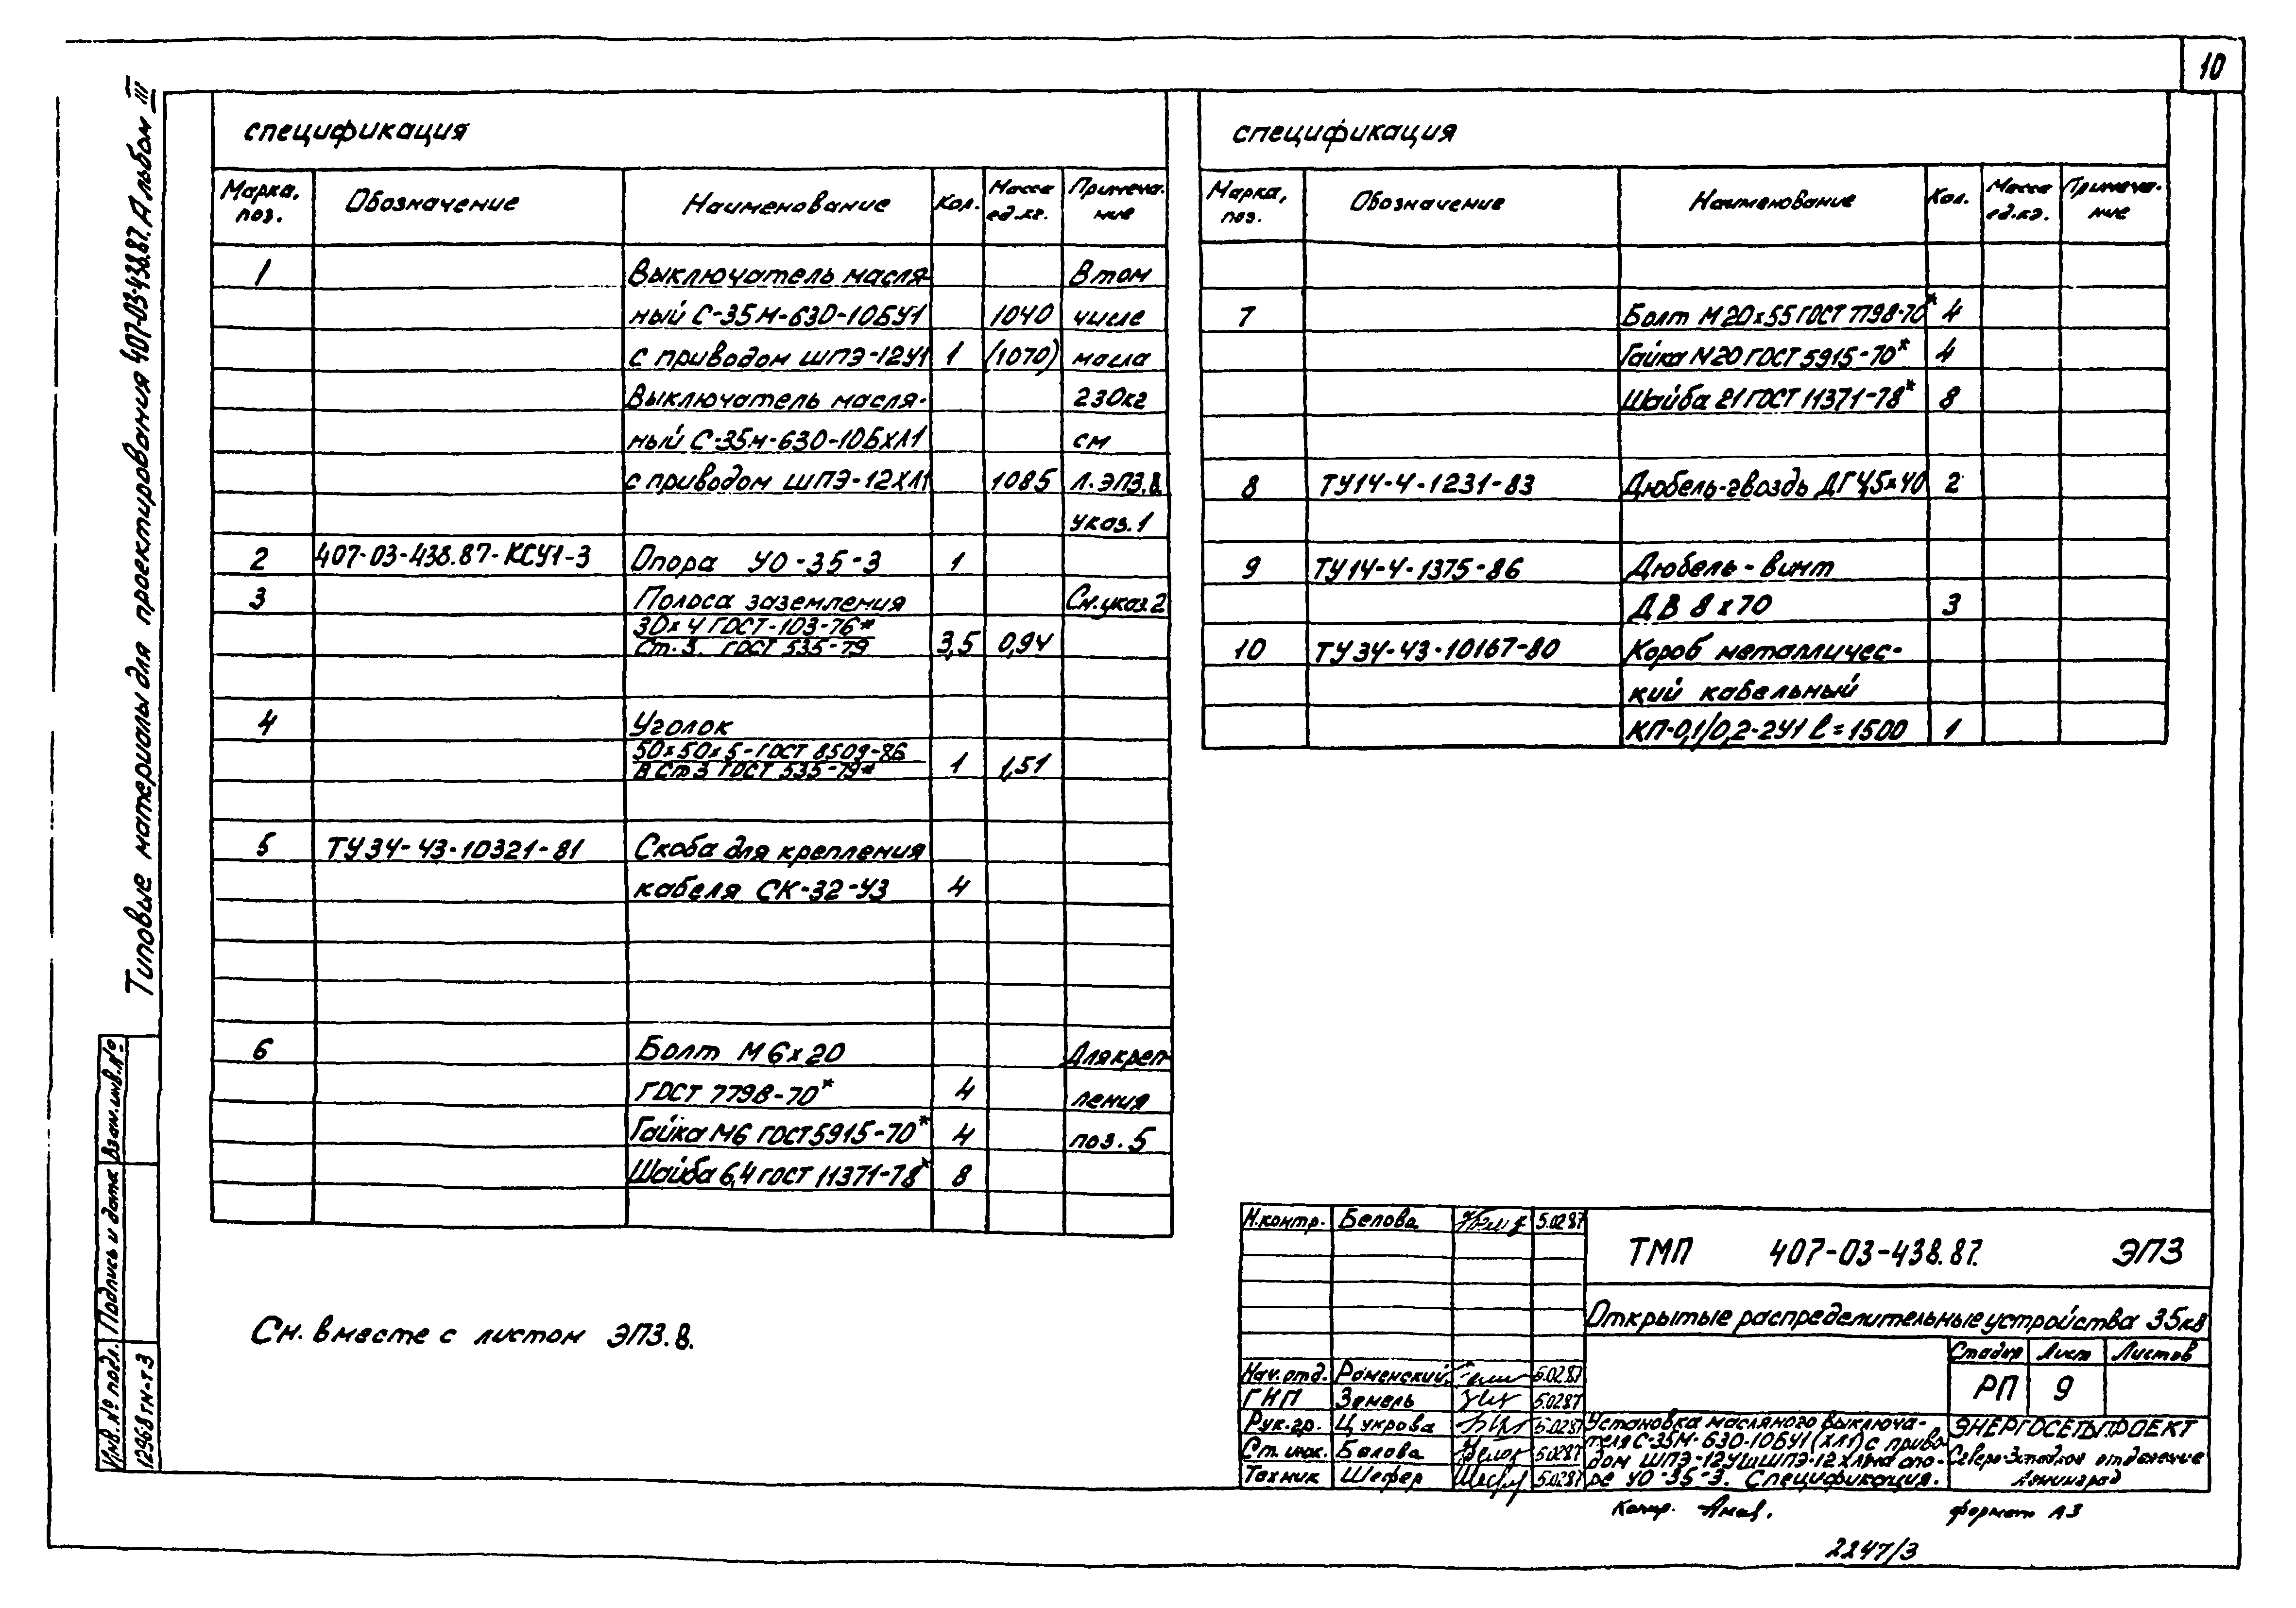 10
Типовые материалы для проектирования 407-03-438.87. Альбом III
спецификация
Марка, поз. Обозначение Наименование Кол. Масса ед.кг. Примеча-ние
1 Выключатель масля- В том
ный С-35М-630-10БУ1 1040 числе
с приводом ШПЭ-12У1 1 (1070) масла
Выключатель масля- 230кг
ный С-35М-630-10БХЛ1 см
с приводом ШПЭ-12ХЛ1 1085 л. ЭП3.8
указ.1
2 407-03-438.87-КСУ1-3 Опора УО-35-3 1
3 Полоса заземления См. указ.2
30х4 ГОСТ-103-76*
Ст.3. ГОСТ 535-79 3,5 0,94
4 Уголок
50х50х5-ГОСТ 8509-86
В Ст3 ГОСТ 535-79* 1 1,51
5 ТУ34-43-10321-81 Скоба для крепления
кабеля СК-32-У3 4
6 Болт М6х20 Для креп-
ГОСТ 7798-70* 4 ления
Гайка М6 ГОСТ 5915-70* 4 поз.5
Шайба 6,4 ГОСТ 11371-78* 8
См. вместе с листом ЭП3.8.
спецификация
Марка, поз. Обозначение Наименование Кол. Масса ед.кг. Примеча-ние
7 Болт М20х55 ГОСТ 7798-70* 4
Гайка М20 ГОСТ 5915-70* 4
Шайба 21 ГОСТ 11371-78* 8
8 ТУ14-4-1231-83 Дюбель-гвоздь ДГ 4,5х40 2
9 ТУ14-4-1375-86 Дюбель-винт
ДВ 8х70 3
10 ТУ34-43-10167-80 Короб металличес-
кий кабельный
КП-0,1/0,2-2У1 ℓ=1500 1
Н.контр. Белова 5.02.87
ТМП 407-03-438.87. ЭП3
Открытые распределительные устройства 35кВ
Стадия Лист Листов
РП 9
Нач.отд. Роменский 5.02.87
ГИП Земель 5.02.87
Рук.гр. Цукрова 5.02.87
Ст.инж. Белова 5.02.87
Техник Шефер 5.02.87
Установка масляного выключа-
теля С-35М-630-10БУ1(ХЛ1) с приво-
дом ШПЭ-12У1ШПЭ-12ХЛ1 на опо-
ре УО-35-3. Спецификация.
ЭНЕРГОСЕТЬПРОЕКТ
Северо-Западное отделение
Ленинград
Копир.
формат А3
2247/3
Взам.инв.№
Подпись и дата
Инв.№ подл.
12968тм-т3